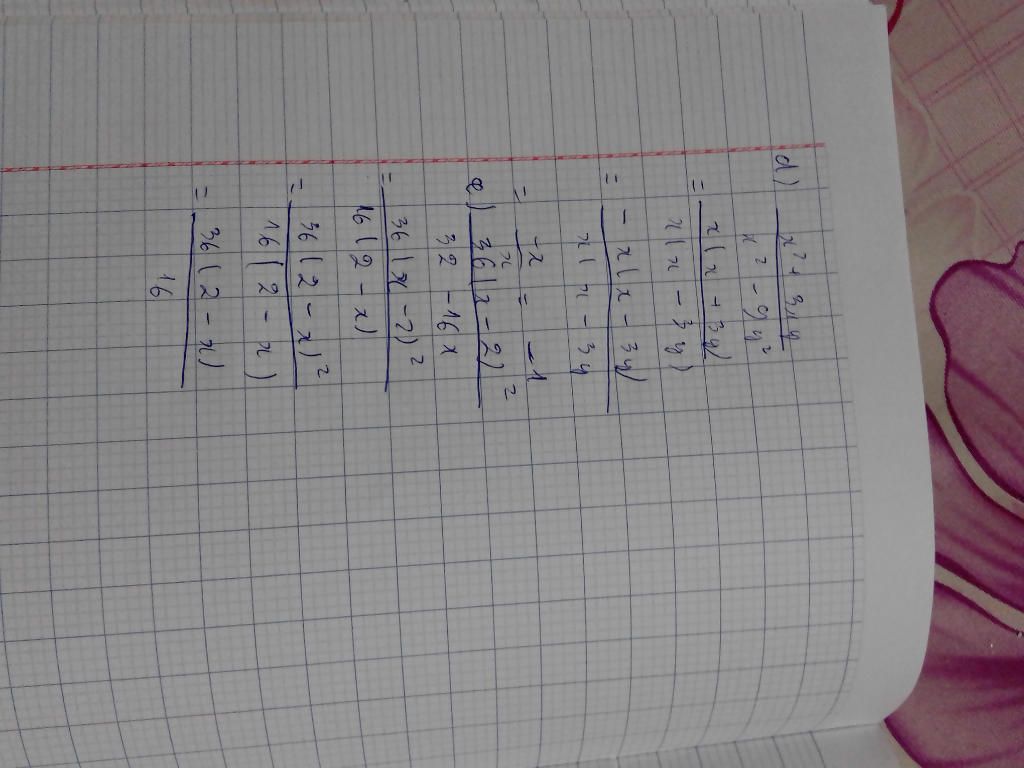 d) x² + 3xy
x² - 9y²
= x(x + 3y)
x(x - 3y)
= - x(x - 3y)
x(x - 3y
= -x = -1
x
e) 36(x - 2)²
32 - 16x
= 36(x - 2)²
16(2 - x)
= 36(2 - x)²
16(2 - x)
= 36(2 - x)
16